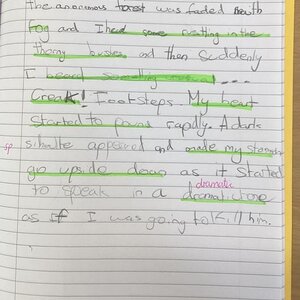 the anonomous forest was faded with
fog and I heard some rustling in the
thorny bushes and then suddenly
I heard something ....
Creak! Footsteps. My heart
started to pound rapidly. A dark
sp sihulte appeared and made my stomach
go upside down as it started
dramatic
to speak in a dramatic tone
as if I was going to kill him.